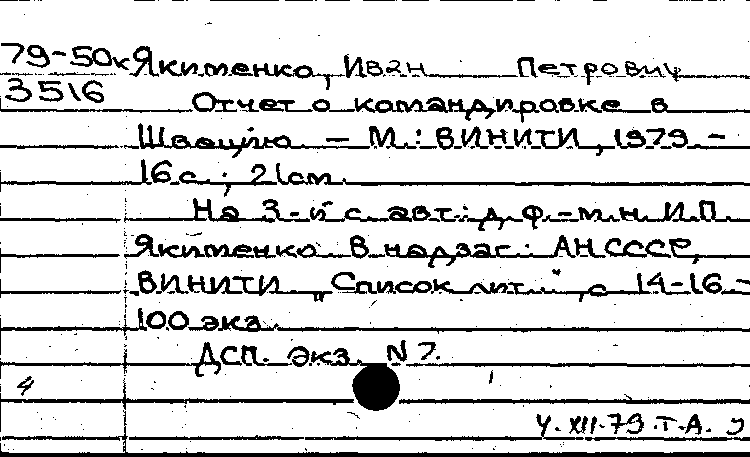 79-50к Якименко, Иван Петрович
3516
Отчет о командировке в
Швецию. — М.: ВИНИТИ, 1979. -
16 с.; 21см.
На 3-й с. авт.: д.ф.-м.н. И.П.
Якименко. В надзаг.: АН СССР,
ВИНИТИ. „Список лит.:", с 14-16. -
100 экз.
ДСП. Экз. N 7.
4
У. XII-79. Т-А. У